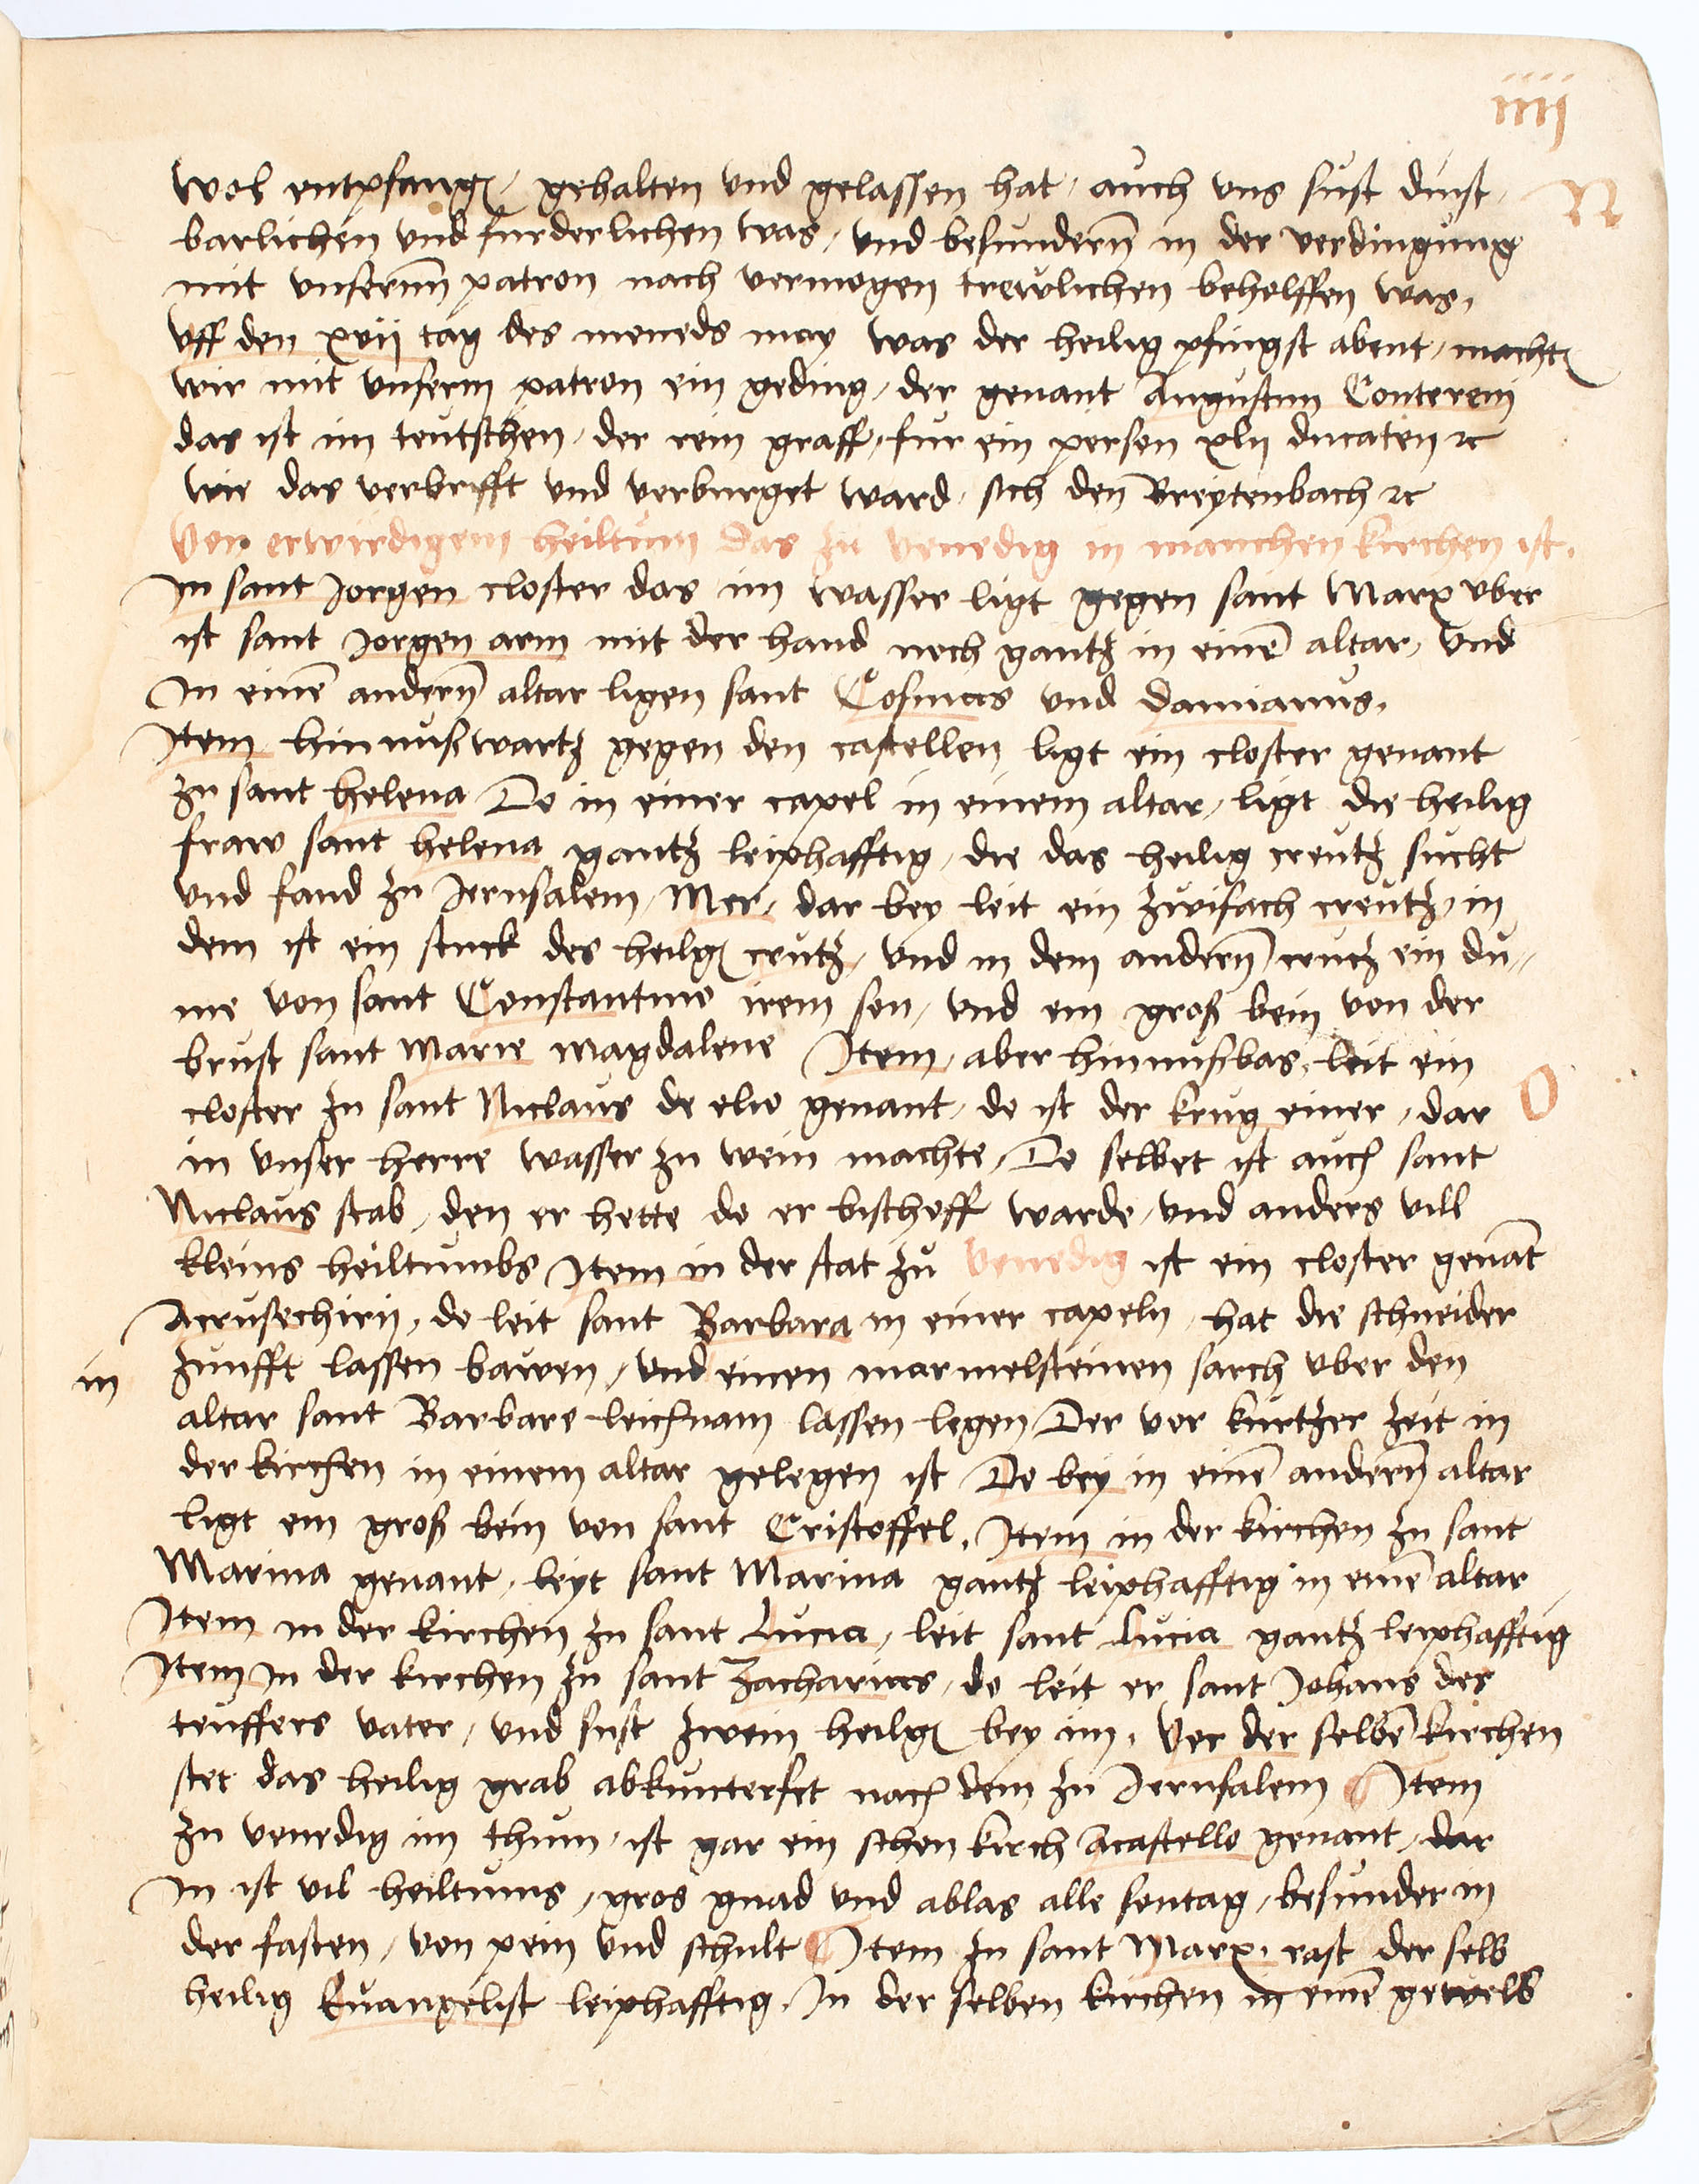 iiij
wol entpfangen / gehalten vnd gelassen hat / auch vns sust dinst /
N
barlichen vnd furderlichen was / vnd besundern̄ in der verdingung
mit vnserm̄ patron nach vermogen trewlichen beholffen was.
Vff den xvij tag des moneds may was der heilig pfingst abent / machten
wir mit vnserm patron ein geding / der genant Augustin Conterein
das ist im teutschen / der rein graff / fur ein person xlij ducaten ꝛc
wie das verbrifft vnd verburget ward / sich den Breytenbach ꝛc
Von erwirdigem heiltum das zu venedig in manchen kirchen ist.
In sant Jorgen closter das im wasser ligt gegen sant Marx vber
ist sant Jorgen arm mit der hand noch gantz in einē altar / vnd
In einē andern̄ altar ligen sant Cosmas vnd Damianus.
Item hinnußwartz gegen den castellen ligt ein closter genant
zu sant helena Do in einer capel in einem altar / ligt die heilig
fraw sant helena gantz leiphafftig / die das heilig creutz sucht
vnd fand zu Jerusalem / Mer / dar bey leit ein zwifach creutz / in
dem ist ein stuck des heilgen crutz / vnd in dem andern̄ crutz ein du //
me von sant Constantino irem son / vnd ein groß bein von der
brust sant Marie magdalene Item / aber hinnußbas / leit ein
closter zu sant Niclaus de elio genant / do ist der krug einer / dar
O
in vnser herre wasser zu wein machte / Do selbet ist auch sant
Niclaus stab / den er hette do er bischoff warde / vnd anders vill
kleins heiltumbs Item in der stat zu venedig ist ein closter genāt
Acrusechirij / do leit sant Barbara in einer capeln / hat die schneider
in zunfft lassen bawen / vnd einen marmelsteinen sarch vber den
altar sant Barbare leichnam lassen legen / Der vor kurtzer zeit in
der kirchen in einem altar gelegen ist Do bey in einē andern̄ altar
ligt ein groß bein von sant Cristoffel. Item in der kirchen zu sant
Marina genant / leyt sant Marina gantz leiphafftig in einē altar
Item in der kirchen zu sant Lucia / leit sant Lucia gantz leiphafftig
Item in der kirchen zu sant Zacharias / do leit er sant Johans des
teuffers vater / vnd sust zwein heilgen bey im. Vor der selbē kirchen
stet das heilig grab abkunterfet nach dem zu Jerusalem Item
zu venedig im thum / ist gar ein schon kirch Acastello genant / dar
In ist vil heiltums / gros gnad vnd ablas alle sontag / besunder in
der fasten / von pein vnd schult Item zu sant Marx / rast der selb
heilig Euangelist leiphafftig. In der selben kirchen in einē gewelb